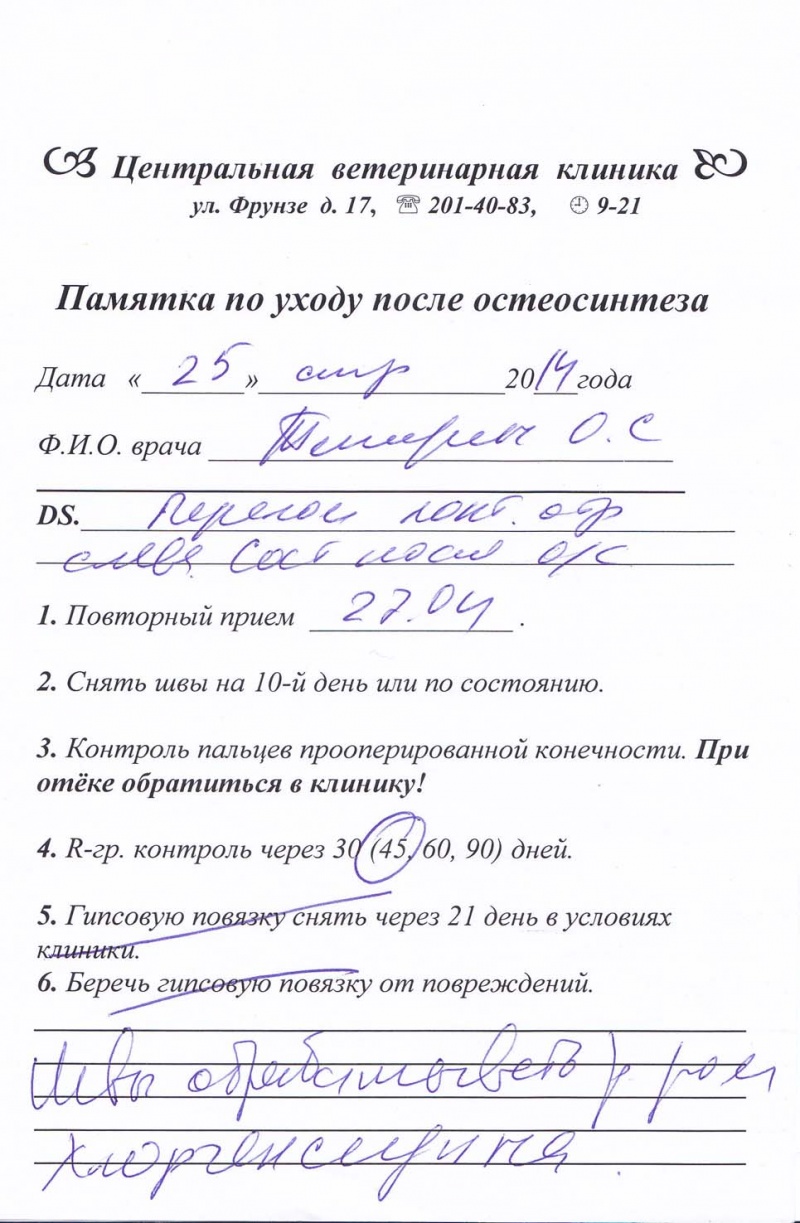 Центральная ветеринарная клиника
ул. Фрунзе д. 17, 201-40-83, 9-21
Памятка по уходу после остеосинтеза
Дата « 25 » апр 2014 года
Ф.И.О. врача О. С
DS. Перелом локт. отр
слева. Сост после о/с
1. Повторный прием 27.04 .
2. Снять швы на 10-й день или по состоянию.
3. Контроль пальцев прооперированной конечности. При
отёке обратиться в клинику!
4. R-гр. контроль через 30 (45, 60, 90) дней.
5. Гипсовую повязку снять через 21 день в условиях
клиники.
6. Беречь гипсовую повязку от повреждений.
Швы обрабатывать
хлоргексидина.